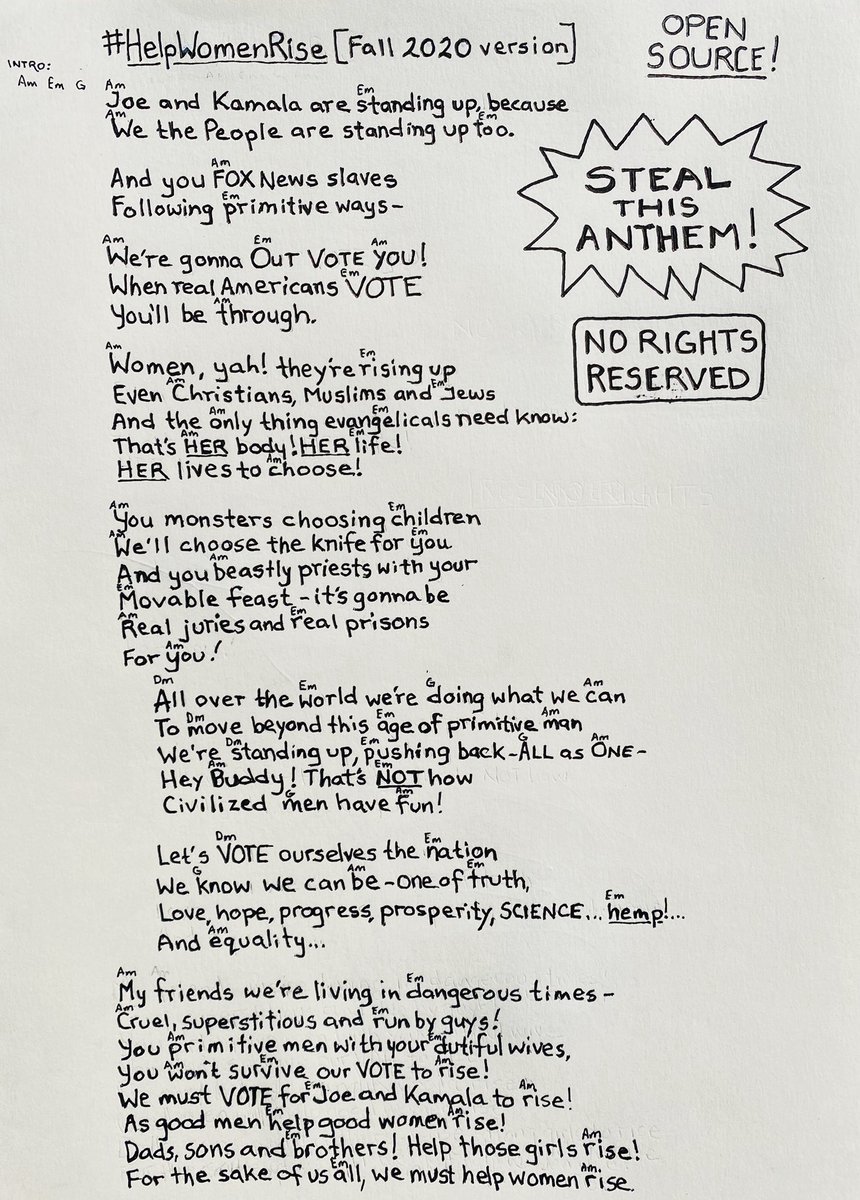 #HelpWomenRise [Fall 2020 version]
OPEN
SOURCE!
INTRO:
Am Em G
STEAL
THIS
ANTHEM!
NO RIGHTS
RESERVED
Am Em
Joe and Kamala are standing up, because
Am Em
We the People are standing up too.
Am
And you FOX News slaves
Em
Following primitive ways-
Am Em Am
We're gonna OUT VOTE YOU!
Em
When real Americans VOTE
Am
You'll be through.
Am Em
Women, yah! they're rising up
Am Em
Even Christians, Muslims and Jews
Am Em
And the only thing evangelicals need know:
Am Em
That's HER body! HER life!
Am
HER lives to choose!
Am Em
You monsters choosing children
Am Em
We'll choose the knife for you
Am
And you beastly priests with your
Em
Movable feast - it's gonna be
Am Em
Real juries and real prisons
Am
For you!
Dm Em G Am
All over the world we're doing what we can
Dm Em Am
To move beyond this age of primitive man
Dm Em G Am
We're standing up, pushing back - ALL as ONE -
Am Em
Hey Buddy! That's NOT how
G Am
Civilized men have fun!
Dm Em
Let's VOTE ourselves the nation
G Am Em
We know we can be - one of truth,
Em
Love, hope, progress, prosperity, SCIENCE... hemp!...
Am
And equality...
Am Em
My friends we're living in dangerous times -
Am Em
Cruel, superstitious and run by guys!
Am Em
You primitive men with your dutiful wives,
Am Em Am
You won't survive our VOTE to rise!
Em Am
We must VOTE for Joe and Kamala to rise!
Em Am
As good men help good women rise!
Em Am
Dads, sons and brothers! Help those girls rise!
Em Am.
For the sake of us all, we must help women rise.